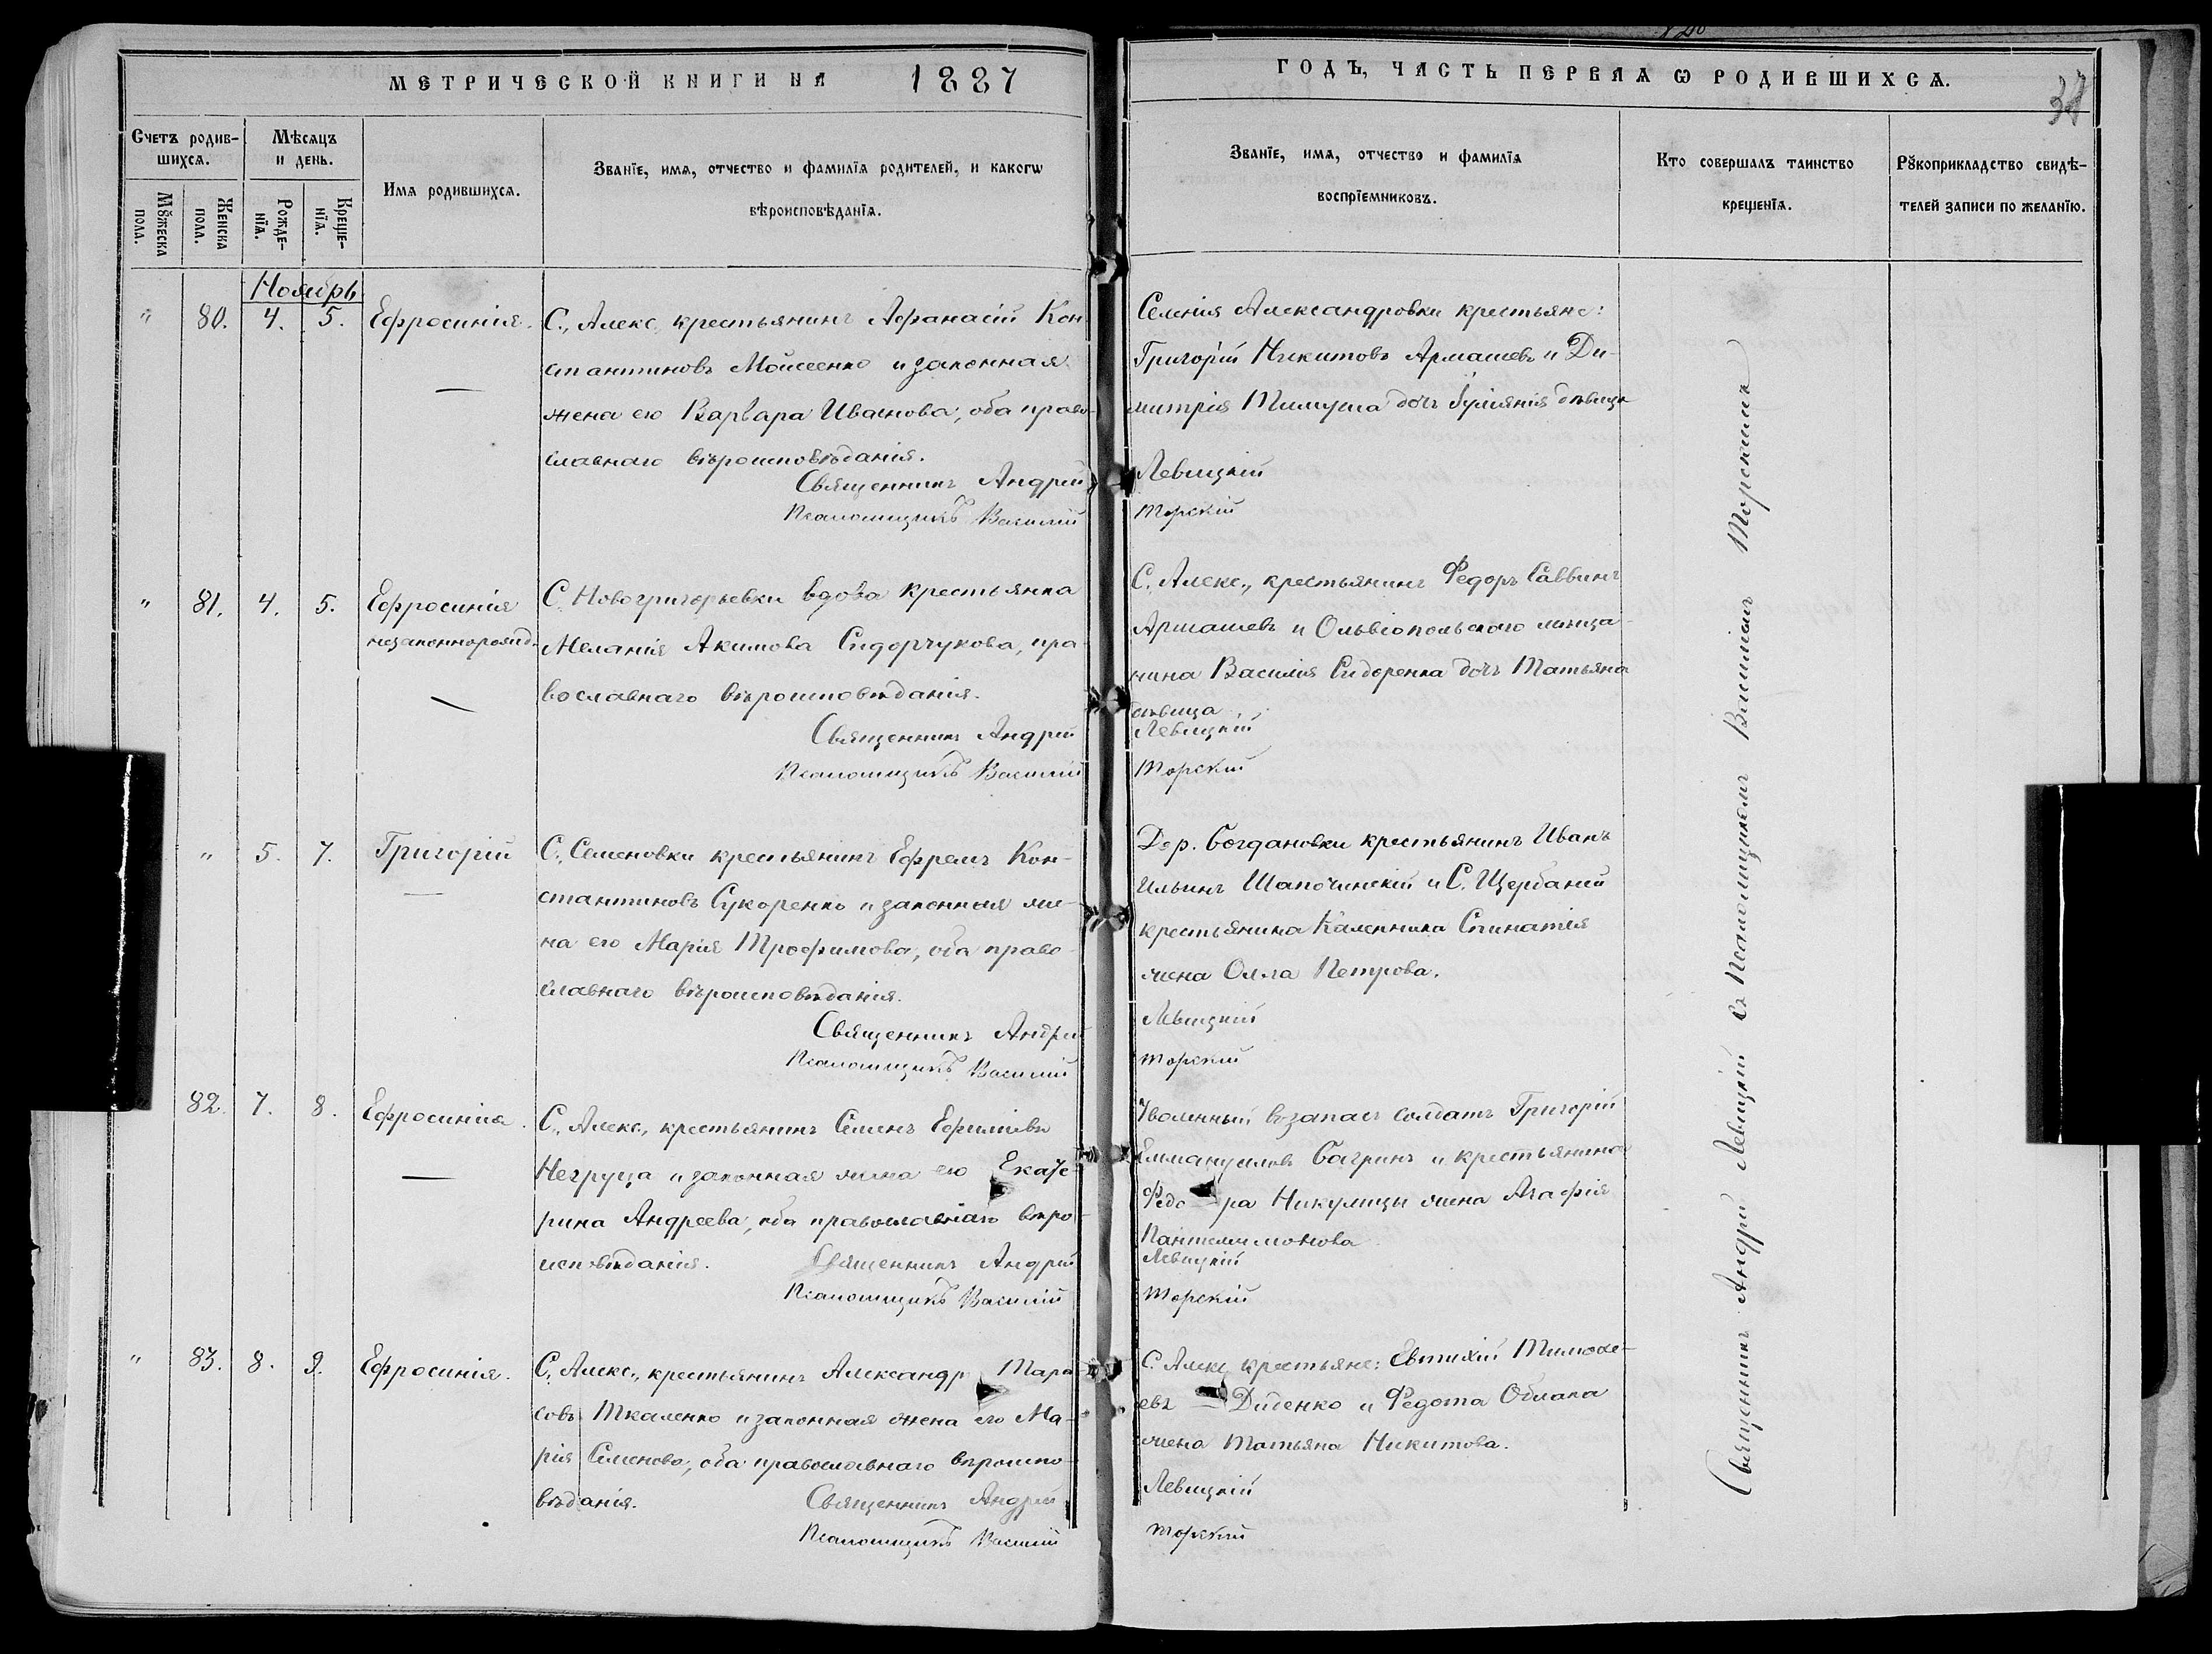 МЕТРИЧЕСКОЙ КНИГИ НА 1887
ГОДЪ, ЧАСТЬ ПЕРВАЯ Ѡ РОДИВШИХСѦ.
Счетъ родив-
шихсѧ.
Мѣсѧцъ
и день.
Мꙋжеска
пола.
Женска
пола.
Рожде-
нїѧ.
Креще-
нїѧ.
Имѧ родившихсѧ.
Званїе, имѧ, отчество и фамилїѧ родителей, и какогѡ
вѣроисповѣданїѧ.
Званїе, имѧ, отчество и фамилїѧ
воспрїемниковъ.
Кто совершалъ таинство
крещенїѧ.
Рꙋкоприкладство свидѣ-
телей записи по желанїю.
Ноябрь
" 80. 4. 5. Ефросинія.
С., Алекс., крестьянинъ Афанасій Кон-
стантиновъ Мойсеенко и законная
жена его Варвара Иванова, оба право-
славнаго вѣроисповѣданія.
Священникъ Андрей
Псаломщикъ Василій
Селенія Александровки крестьяне:
Григорій Никитовъ Армашевъ и Ди-
митрія дочь дѣвица
Левицкій
Торскій
" 81. 4. 5. Ефросинія
незаконнорожд.
С. Новогригорьевки вдова крестьянка
Меланія Акимова Сидорчукова, пра-
вославнаго вѣроисповѣданія.
Священникъ Андрей
Псаломщикъ Василій
С. Алекс., крестьянинъ Федоръ Саввинъ
Армашевъ и Ольвіопольскаго мѣща-
нина Василія Сидоренка дочь Татьяна
дѣвица
Левицкій
Торскій
" 5. 7. Григорій
С., Семеновки крестьянинъ Ефремъ Кон-
стантиновъ Сукоренко и законная же-
на его Марія Трофимова, оба право-
славнаго вѣроисповѣданія.
Священникъ Андрей
Псаломщикъ Василій
Дер. Богдановки крестьянинъ Иванъ
Ильинъ Шапочинскій и С. Щербаней
крестьянина
жена Олга Петрова.
Левицкій
Торскій
82. 7. 8. Ефросинія.
С., Алекс., крестьянинъ Семенъ Ефимовъ
Негруца и законная жена его Екате-
рина Андреева, оба православнаго вѣро-
исповѣданія. Священникъ Андрей
Псаломщикъ Василій
Уволенный въ запасъ солдатъ Григорій
Еммануиловъ Багринъ и крестьянина
Федо-ра Никулицы жена Агафія
Пантелимонова
Левицкій
Торскій
" 83. 8. 9. Ефросинія.
С., Алекс., крестьянинъ Александръ Тара-
совъ Ткаленко и законная жена его Ма-
рія Семенова, оба православнаго вѣроиспо-
вѣданія. Священникъ Андрей
Псаломщикъ Василій
С. Алекс. крестьяне: Евтихій Тимофе-
евъ Диденко и Федота
жена Татьяна Никитова.
Левицкій
Торскій
Священникъ Андрей Левицкій съ Псаломщикомъ Василіемъ Торскимъ